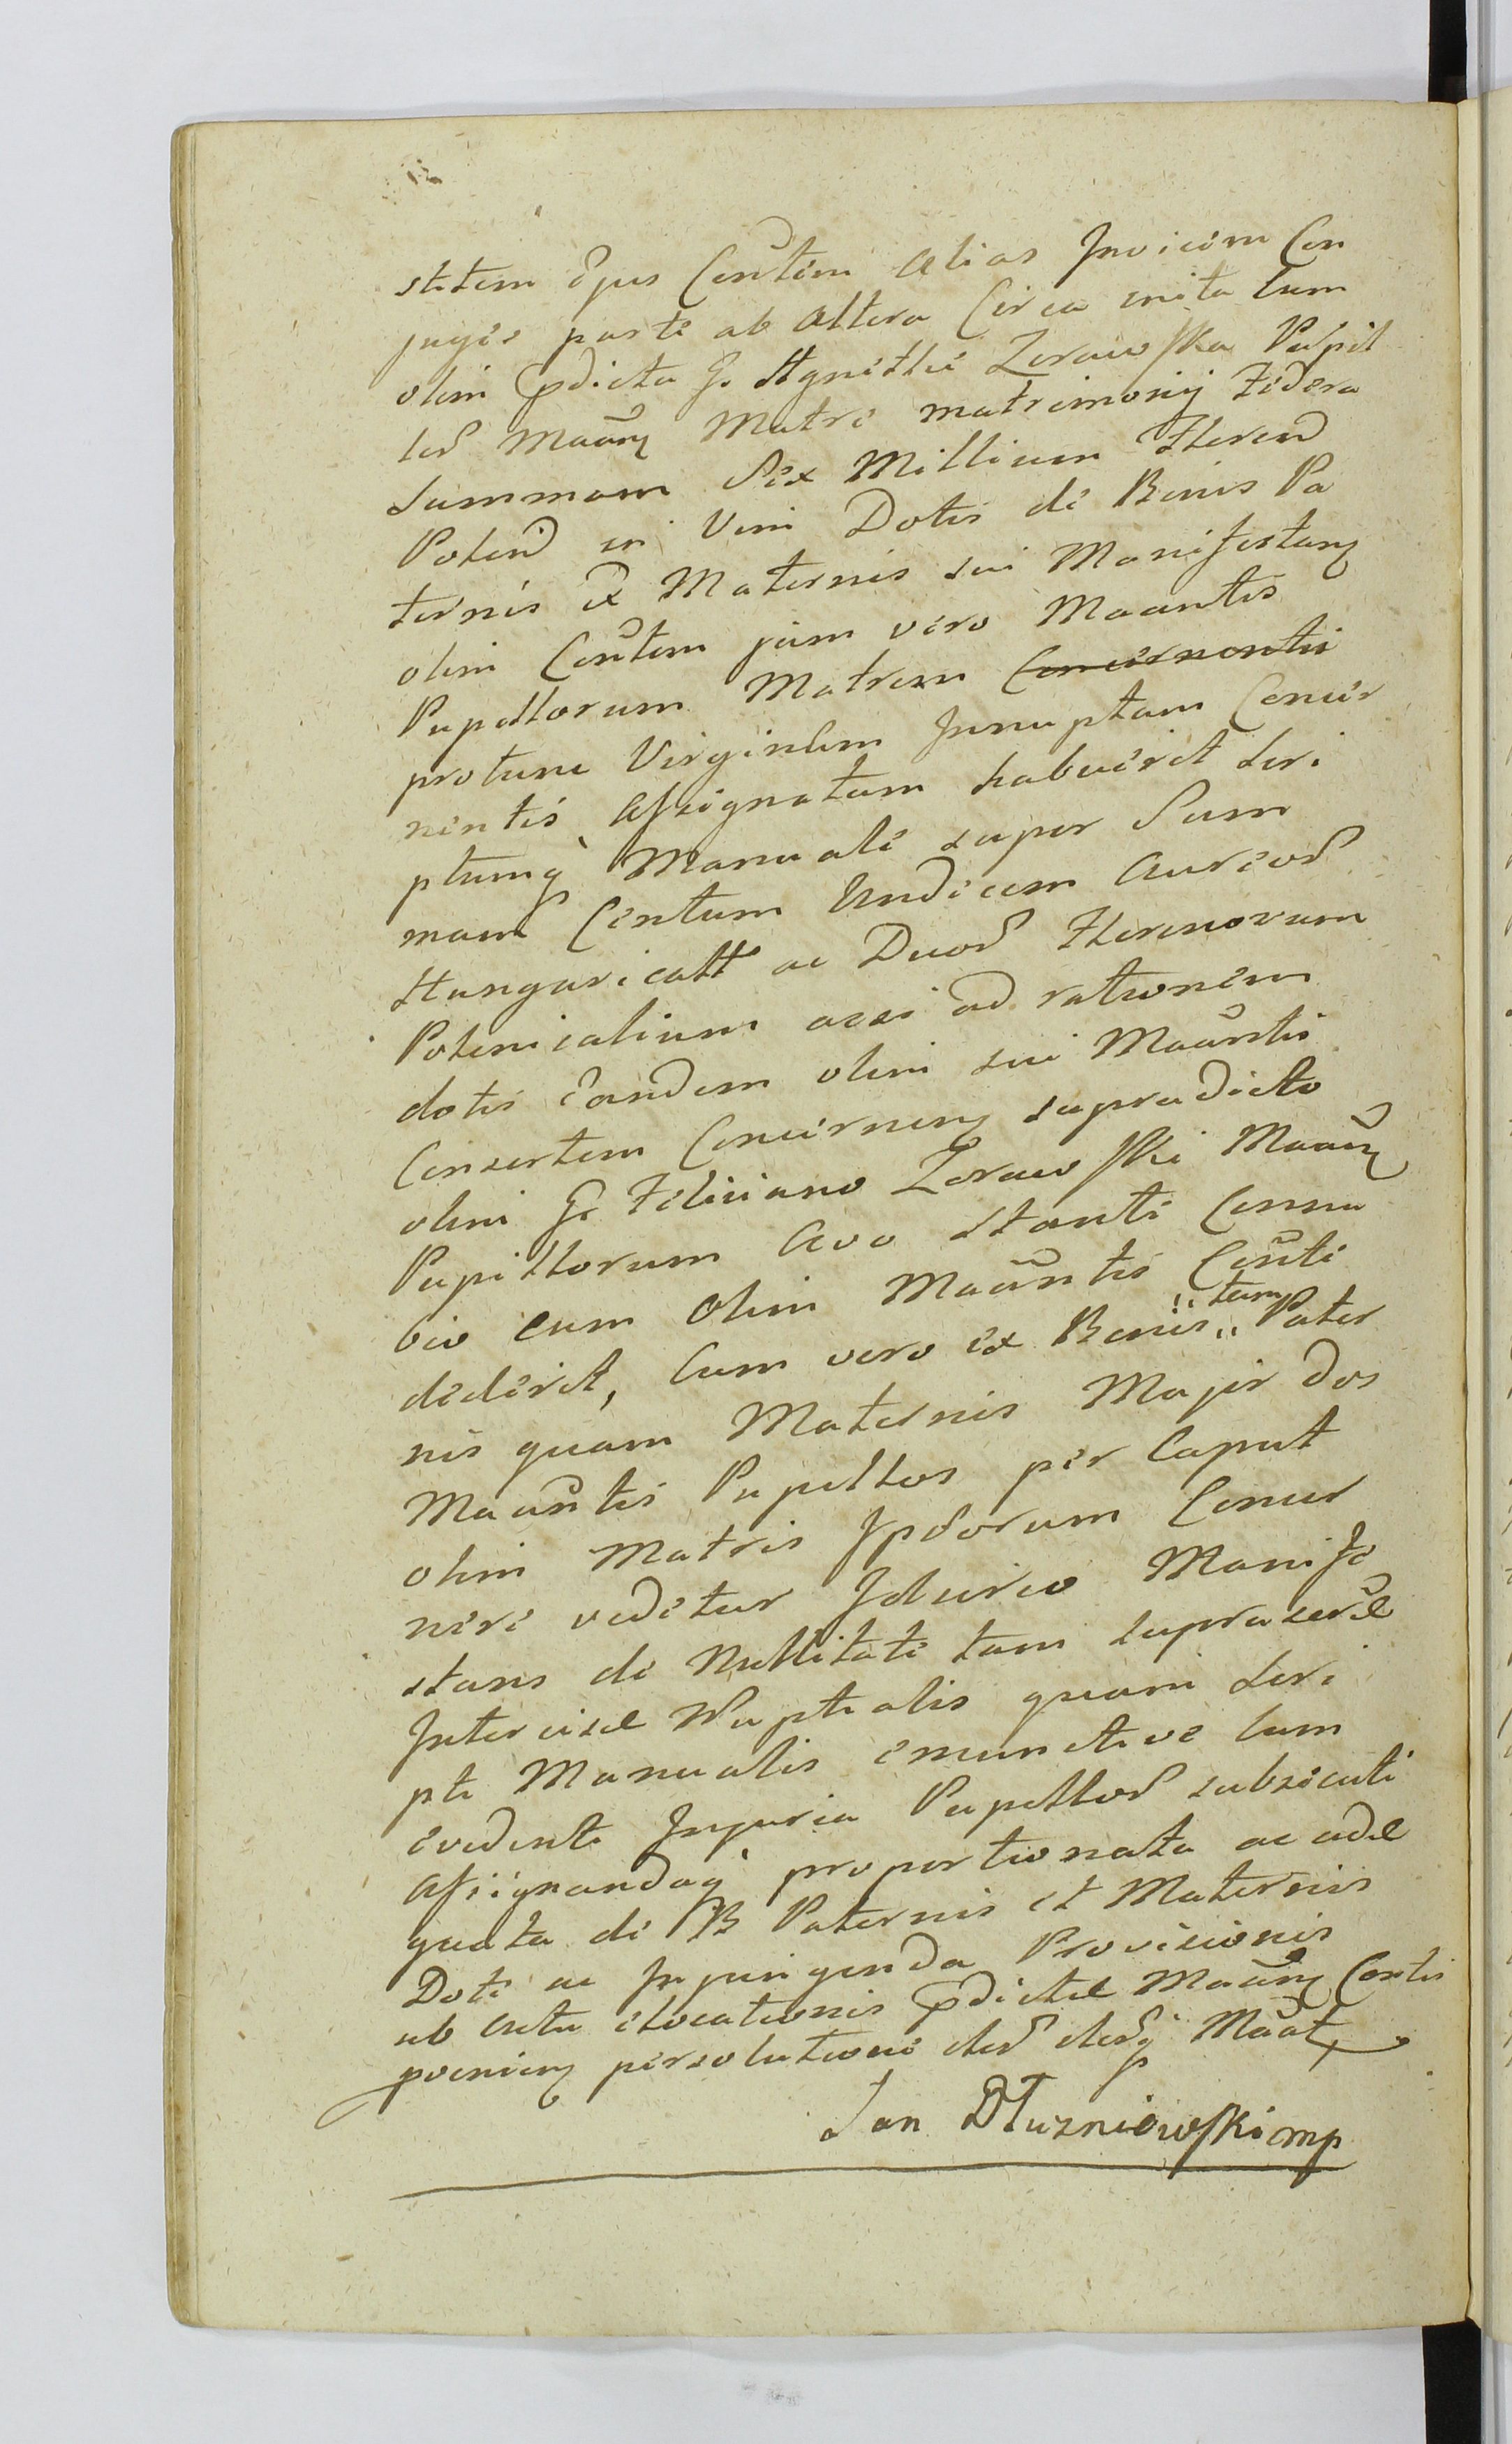 stitem ejus Contem alias Invicem Con
juges parte ab altera Circa inita cum
olim pdicta G. Agnethe Zorawska Pupil
los Maan Matre matrimonij Fædera
Summam Sex Millium Floren
Polon in Vim Dotis de Bonis Pa
ternis et Maternis sui Manifestan
olim Contem jam vero Maantis
Pupillorum Matrem Concernentis
protunc Virginem Innuptam Concer
nentis Assignatam habuerit Scri
ptumq Manuale super Sum
mam Centum Undecim Aureos
Hungaricales ac Duos Florenorum
Polonicalium acsi ad rationem
dotis eandem olim sui Maantis
Consortem Concernen supradicto
olim G. Feliciano Zorawski Maan
Pupillorum Avo stante Connu
bio cum olim Maantis Conte
dederit, Cum vero ex Bonis tam Pater
nis quam Maternis Major dos
Maantis Pupillos per Caput
olim Matris Ipsorum Concer
nere videtur Idcirco Manife
stans de Nullitate tam suprascrae
Intercisae Nuptialis quam Scri
pti Manualis emunctive cum
evidenti Injuria Pupillos subsecuti
Assignandaq proportionata ac adae
quata de B Paternis et Maternis
Dote ac Injungenda Provisionis
ab actu elocationis pdictae Maan Contis
provenien persolutione des desq Maat
Jan Dłuzniowski mp